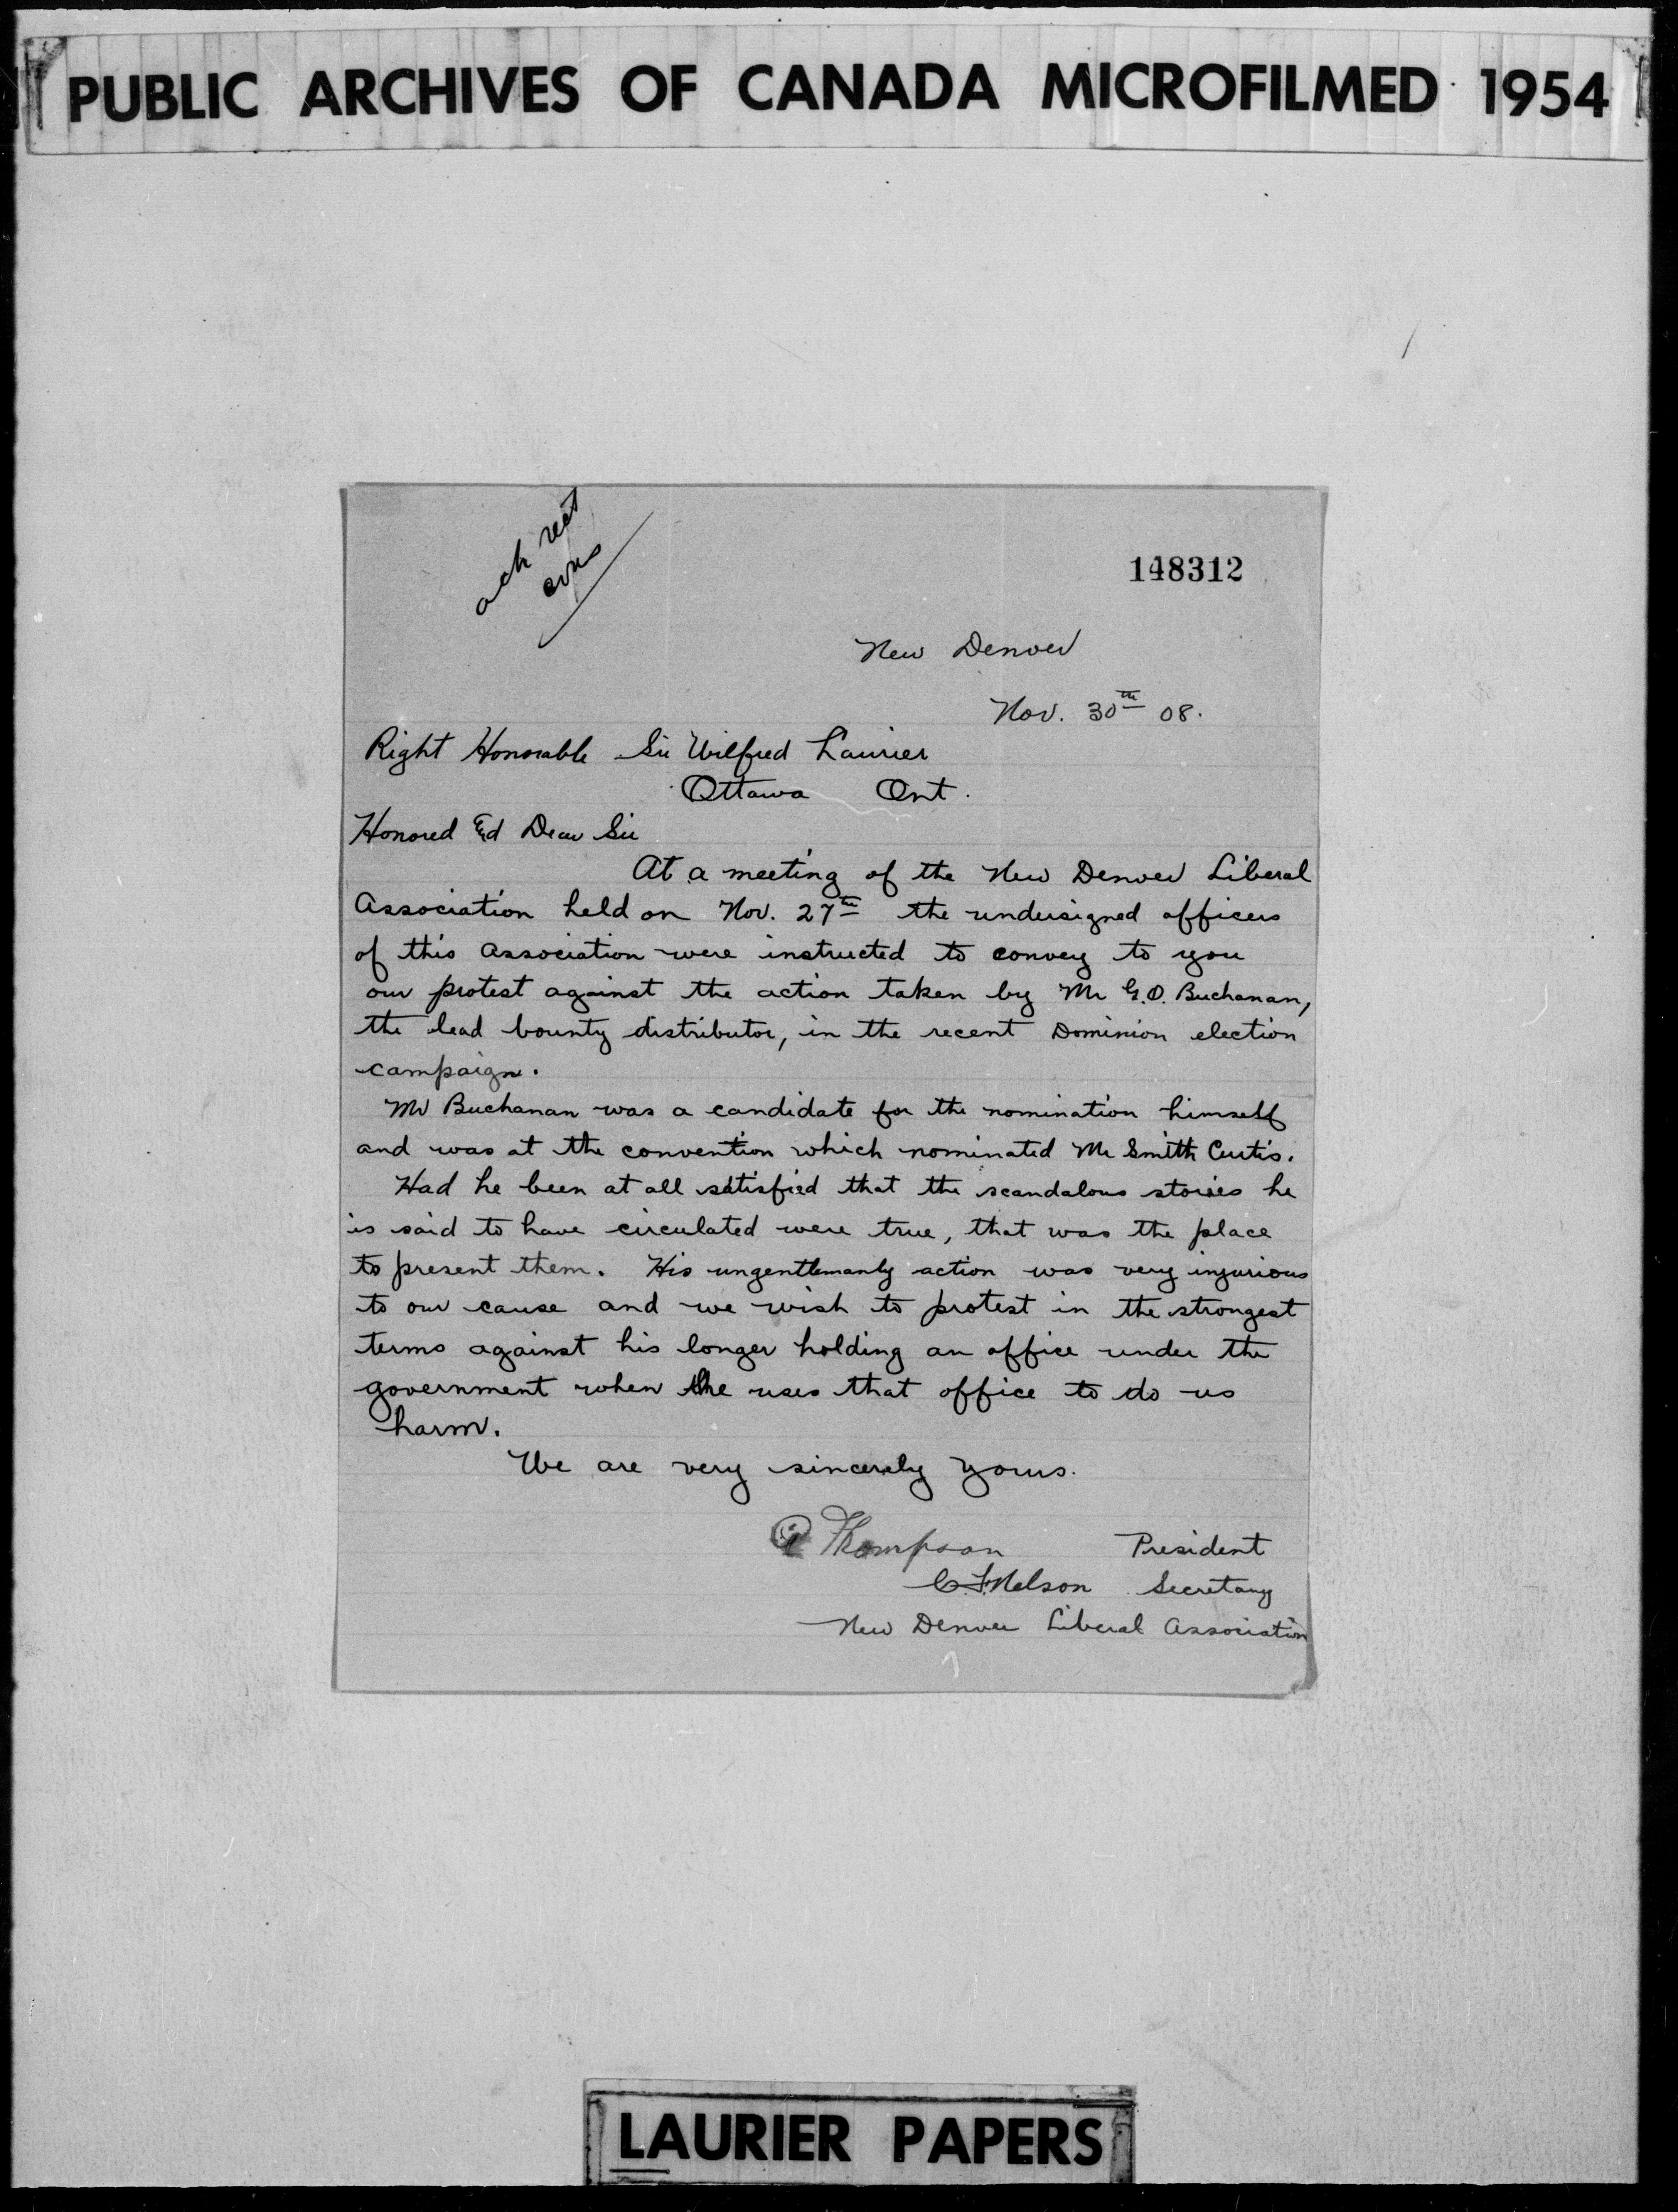 PUBLIC ARCHIVES OF CANADA MICROFILMED 1954
ack rect
148312
New Denver
Nov. 30th 08.
Right Honorable Sir Wilfred Laurier
Ottawa Ont.
Honored & Dear Sir
At a meeting of the New Denver Liberal
Association held on Nov. 27th the undersigned officers
of this Association were instructed to convey to you
our protest against the action taken by Mr G.O. Buchanan,
the lead bounty distributor, in the recent Dominion election
campaign.
Mr Buchanan was a candidate for the nomination himself
and was at the convention which nominated Mr Smith Curtis.
Had he been at all satisfied that the scandalous stories he
is said to have circulated were true, that was the place
to present them. His ungentlemanly action was very injurious
to our cause and we wish to protest in the strongest
terms against his longer holding an office under the
government when he uses that office to do us
harm.
We are very sincerely yours.
Thompson President
C.F. Nelson Secretary
New Denver Liberal Association
LAURIER PAPERS